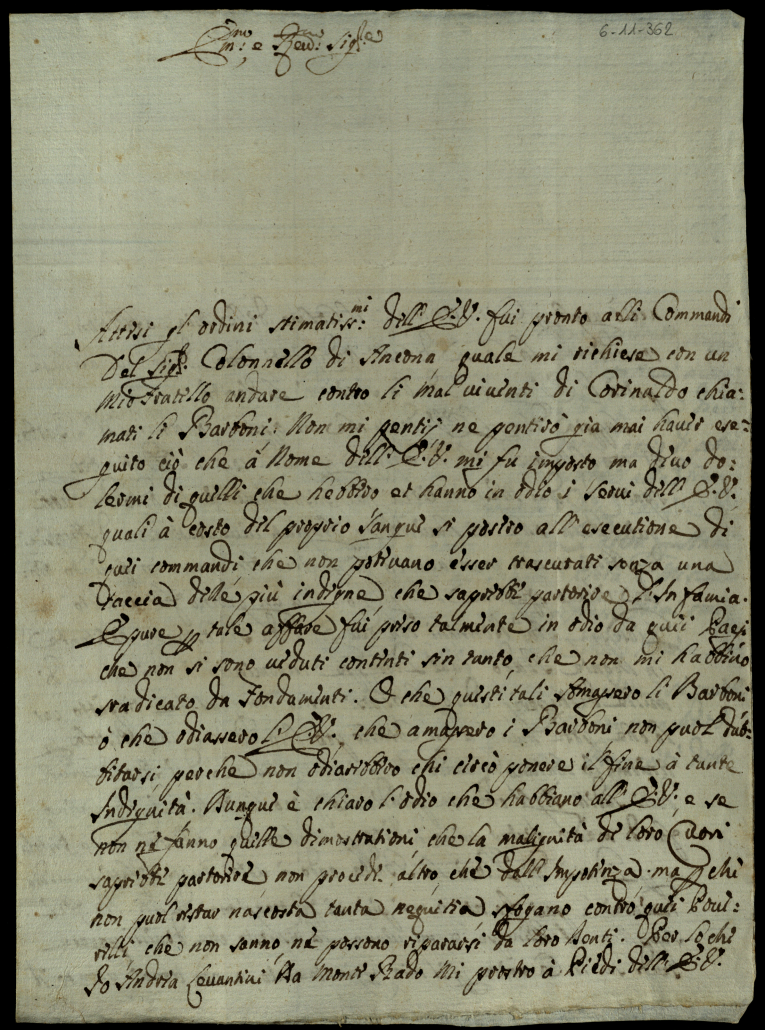 6-11-362
Em:mo e Rev:mo Sig:re
Attesi gl'ordini stimatiss:mi dell'E.V. fui pronto alli Commandi
Del Sig:r Colonnello di Ancona quale mi richiese con un
Mio fratello andare contro li mal viventi di Corinaldo chia:
mati li Barboni. Non mi pentij ne pentirò gia mai haver ese:
guito ciò che à Nome dell'E.V. mi fu imposto ma devo do:
lermi di quelli che hebbero et hanno in odio i servi dell'E.V.
quali à costo del proprio sangue si posero all'esecutione di
quei commandi che non potevano esser trascurati senza una
taccia delle più indegne che saprebbe partorire l'Infamia.
E pure p tale affare fui preso talmente in odio da quei Paesi
che non si sono veduti contenti sin tanto che non mi habbino
sradicato da Fondamenti. O che questi tali amassero li Barboni
ò che odiassero l'E.V., che amassero i Barboni non puol dub:
bitarsi perche non odiarebbero chi cercò ponere il fine à tante
Indegnità. Dunque è chiaro l'odio che habbiano all'E.V. e se
non ne fanno quelle dimostrationi che la malignità de loro Cuori
saprebbe partorire non procede altro che dall'Impotenza. ma p che
non puol restar nascosta tanta nequitia sfogano contro quei Pove:
relli che non sanno ne possono ripararsi da loro denti. Per lo che
Io Andrea Levantini da Monte Rado Mi prostro à Piedi dell'E.V.